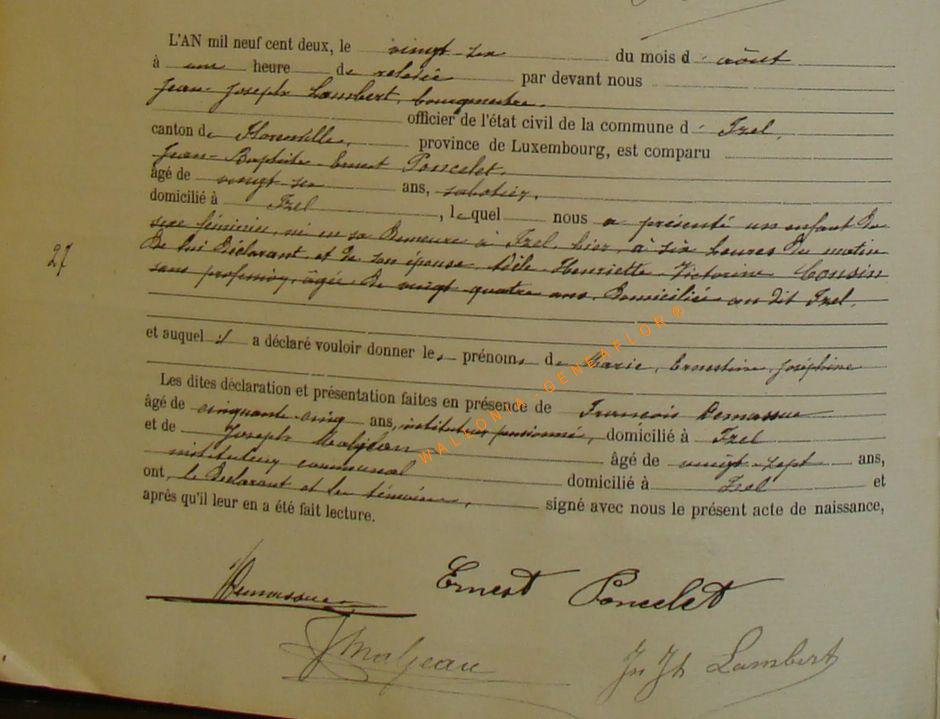 L'AN mil neuf cent deux, le vingt-six du mois d août
à une heure de relevée par devant nous
Jean-Joseph Lambert, bourgmestre
officier de l'état civil de la commune d Izel,
canton de Florenville, province de Luxembourg, est comparu
Jean-Baptiste-Ernest Poncelet,
âgé de vingt-six ans, sabotier,
domicilié à Izel, lequel nous a présenté un enfant du
sexe féminin, né en sa demeure à Izel, hier, à six heures du matin
27
de lui Déclarant et de son épouse Henriette-Victorine Cousin
sans profession, âgée de vingt-quatre ans, Domiciliée au dit Izel.
et auquel il a déclaré vouloir donner les prénoms de Marie, Ernestine, Joséphine
Les dites déclaration et présentation faites en présence de François Demassue
âgé de cinquante-cinq ans, instituteur pensionné, domicilié à Izel
et de Joseph Maljean âgé de vingt-sept ans,
instituteur communal domicilié à Izel et
ont, le Déclarant et les témoins, signé avec nous le présent acte de naissance,
après qu'il leur en a été fait lecture.
WALLONIA.GENEAFLOR®
Demassue
Ernest Poncelet
J Maljean
Jn Jh Lambert